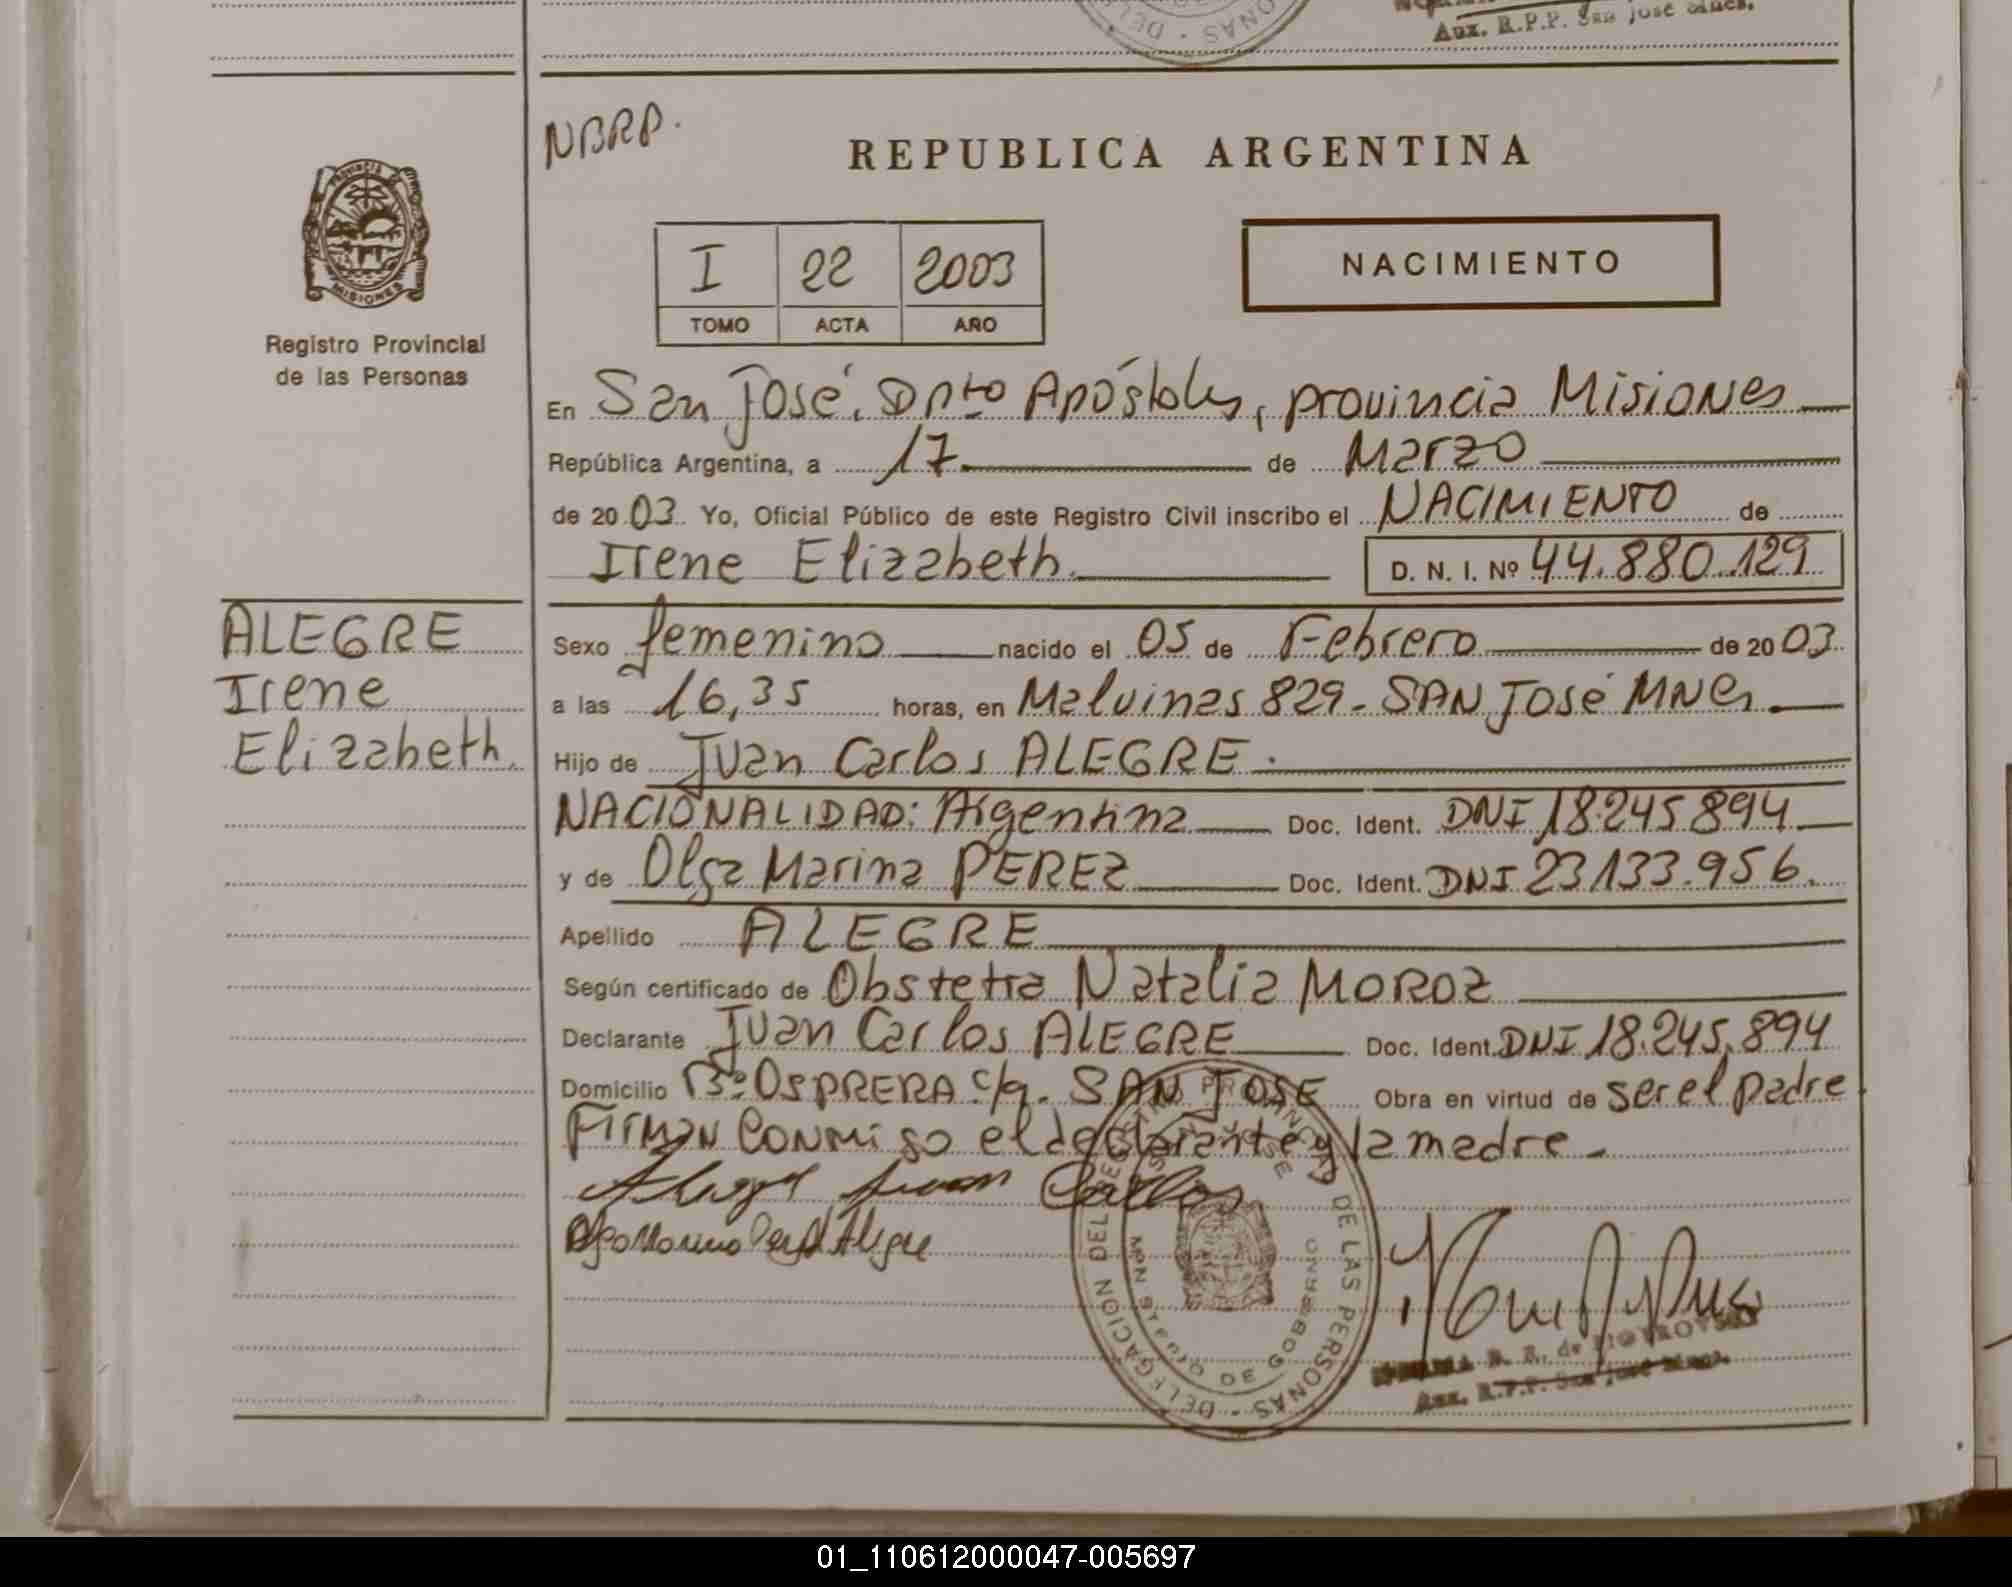 Aux. R.P.P. San José Mnes.
NBRP.
REPUBLICA ARGENTINA
PROVINCIA DE
MISIONES
I 22 2003
TOMO ACTA AÑO
NACIMIENTO
Registro Provincial
de las Personas
En San José. Dpto Apóstoles, provincia Misiones
República Argentina, a 17 de Marzo
de 2003 Yo, Oficial Público de este Registro Civil inscribo el NACIMIENTO de
Irene Elizabeth. D. N. I. Nº 44.880.129
ALEGRE
Irene
Elizabeth.
Sexo femenino nacido el 05 de Febrero de 2003
a las 16,35 horas, en Malvinas 829 - SAN José MNes.
Hijo de Juan Carlos ALEGRE.
NACIONALIDAD: Argentina Doc. Ident. DNI 18.245.894
y de Olga Marina PEREZ Doc. Ident. DNI 23.133.956.
Apellido ALEGRE
Según certificado de Obstetra Natalia MOROZ
Declarante Juan Carlos ALEGRE Doc. Ident. DNI 18.245.894
Domicilio Bº OSPRERA c/q. SAN JOSE Obra en virtud de ser el padre
Firman conmigo el declarante y la madre.-
Alegre Juan Carlos
DELEGACION DEL REGISTRO PROVINCIAL DE LAS PERSONAS
SAN JOSE
MINISTERIO DE GOBIERNO
Aux. R.P.P. San José Mnes.
01_110612000047-005697